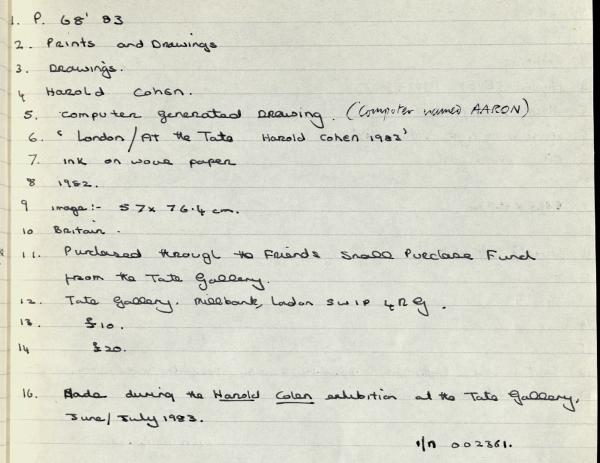 1. P. 68' 83
2. Prints and Drawings
3. Drawings.
4 Harold Cohen.
5. Computer generated Drawing. (Computer named AARON)
6. ' London/At the Tate Harold Cohen 1983'
7. ink on wove paper
8 1982.
9 image:- 57 x 76.4 cm.
10 Britain.
11. Purchased through the Friends Small Purchase Fund
from the Tate Gallery.
12. Tate Gallery. Millbank, London SW1P 4RG.
13. £10.
14 £20.
16. Made during the Harold Cohen exhibition at the Tate Gallery,
June/July 1983.
1/n 002361.